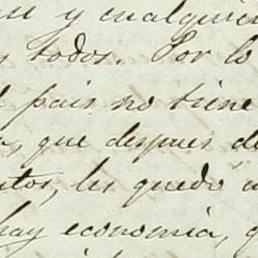 y cualquier
todos. Por lo
pais no tiene
que despues de
les quedó
hay economia,